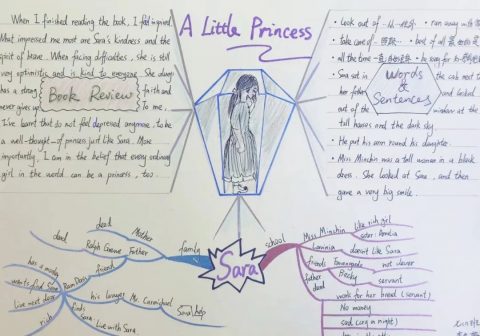 A Little Princess
When I finished reading the book, I feel inspired.
What impressed me most are Sara's kindness and the
spirit of brave. When facing difficulties, she is still
very optimistic and is kind to everyone. She always
has a strong faith and
never gives up. To me,
I've learnt that do not feel depressed anymore, to be
a well-thought-of princess just like Sara. More
importantly, I am in the belief that every ordinary
girl in the world can be a princess, too.
Book Review
Look out of run away with
take care of best of all
all the time
Sara sat in the cab next to
her father and looked
out of the window at the
tall houses and the dark sky.
He put his arm round his daughter.
Miss Minchin was a tall woman in a black
dress. She looked at Sara, and then
gave a very big smile.
Words
&
Sentences
Sara
family
Mother
dead
Father
Ralph Crewe
dead
friend
Ram Dass
has a monkey
wants find Sara
live next door
rich
his lawyer Mr. Carmichael
finds
Sara live with Sara
Sara help
school
Miss Minchin
like rich girl
sister: Amelia
Lavinia
doesn't like Sara
friends
Ermengarde
not clever
Becky
servant
father
dead
work for her bread (servant)
No money
sad (cry in night)